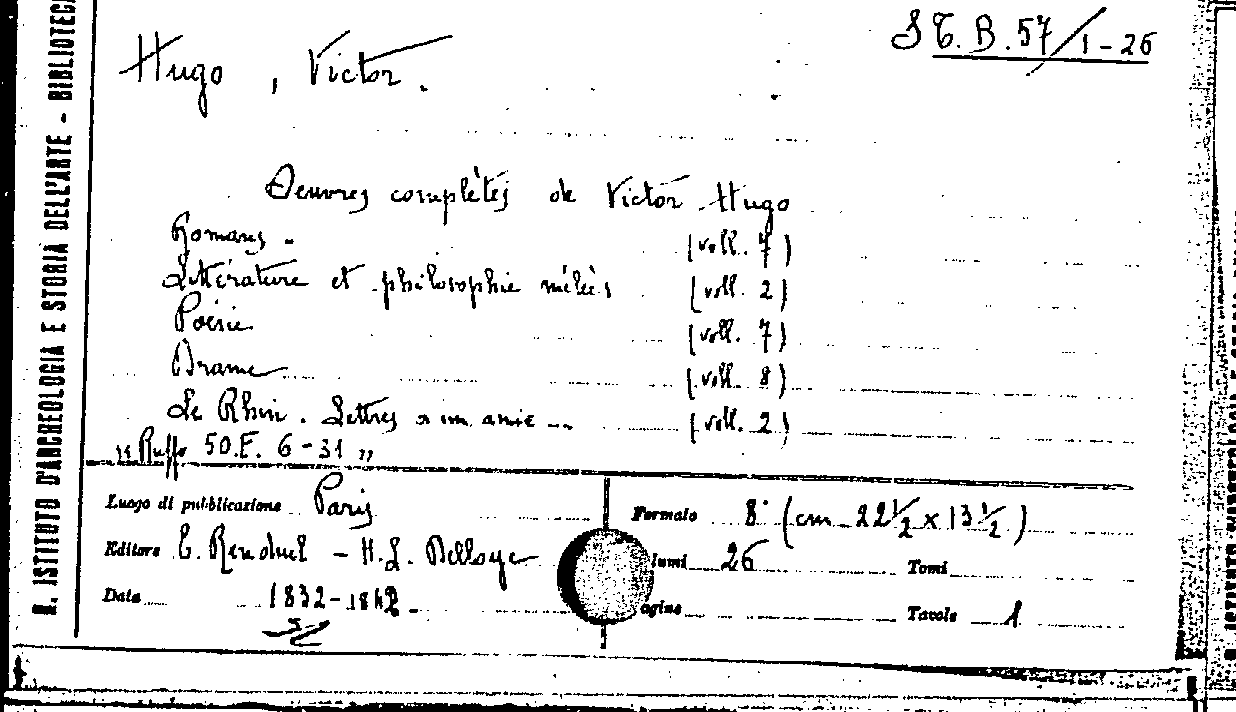 R. ISTITUTO D'ARCHEOLOGIA E STORIA DELL'ARTE - BIBLIOTECA
Hugo, Victor.
B. 57/1-26
Oeuvres complètes de Victor Hugo
Romans. (voll. 7)
Littérature et philosophie mêlées (voll. 2)
Poésie (voll. 7)
Drame (voll. 8)
Le Rhin. Lettres a un amie... (voll. 2)
" Ruffo 50.F. 6-31 "
Luogo di pubblicazione Paris
Formato 8° (cm 22 1/2 x 13 1/2)
Editore E. Renduel - H. L. Delloye
lumi 26 Tomi
Data 1832-1842.
agine Tavole 1